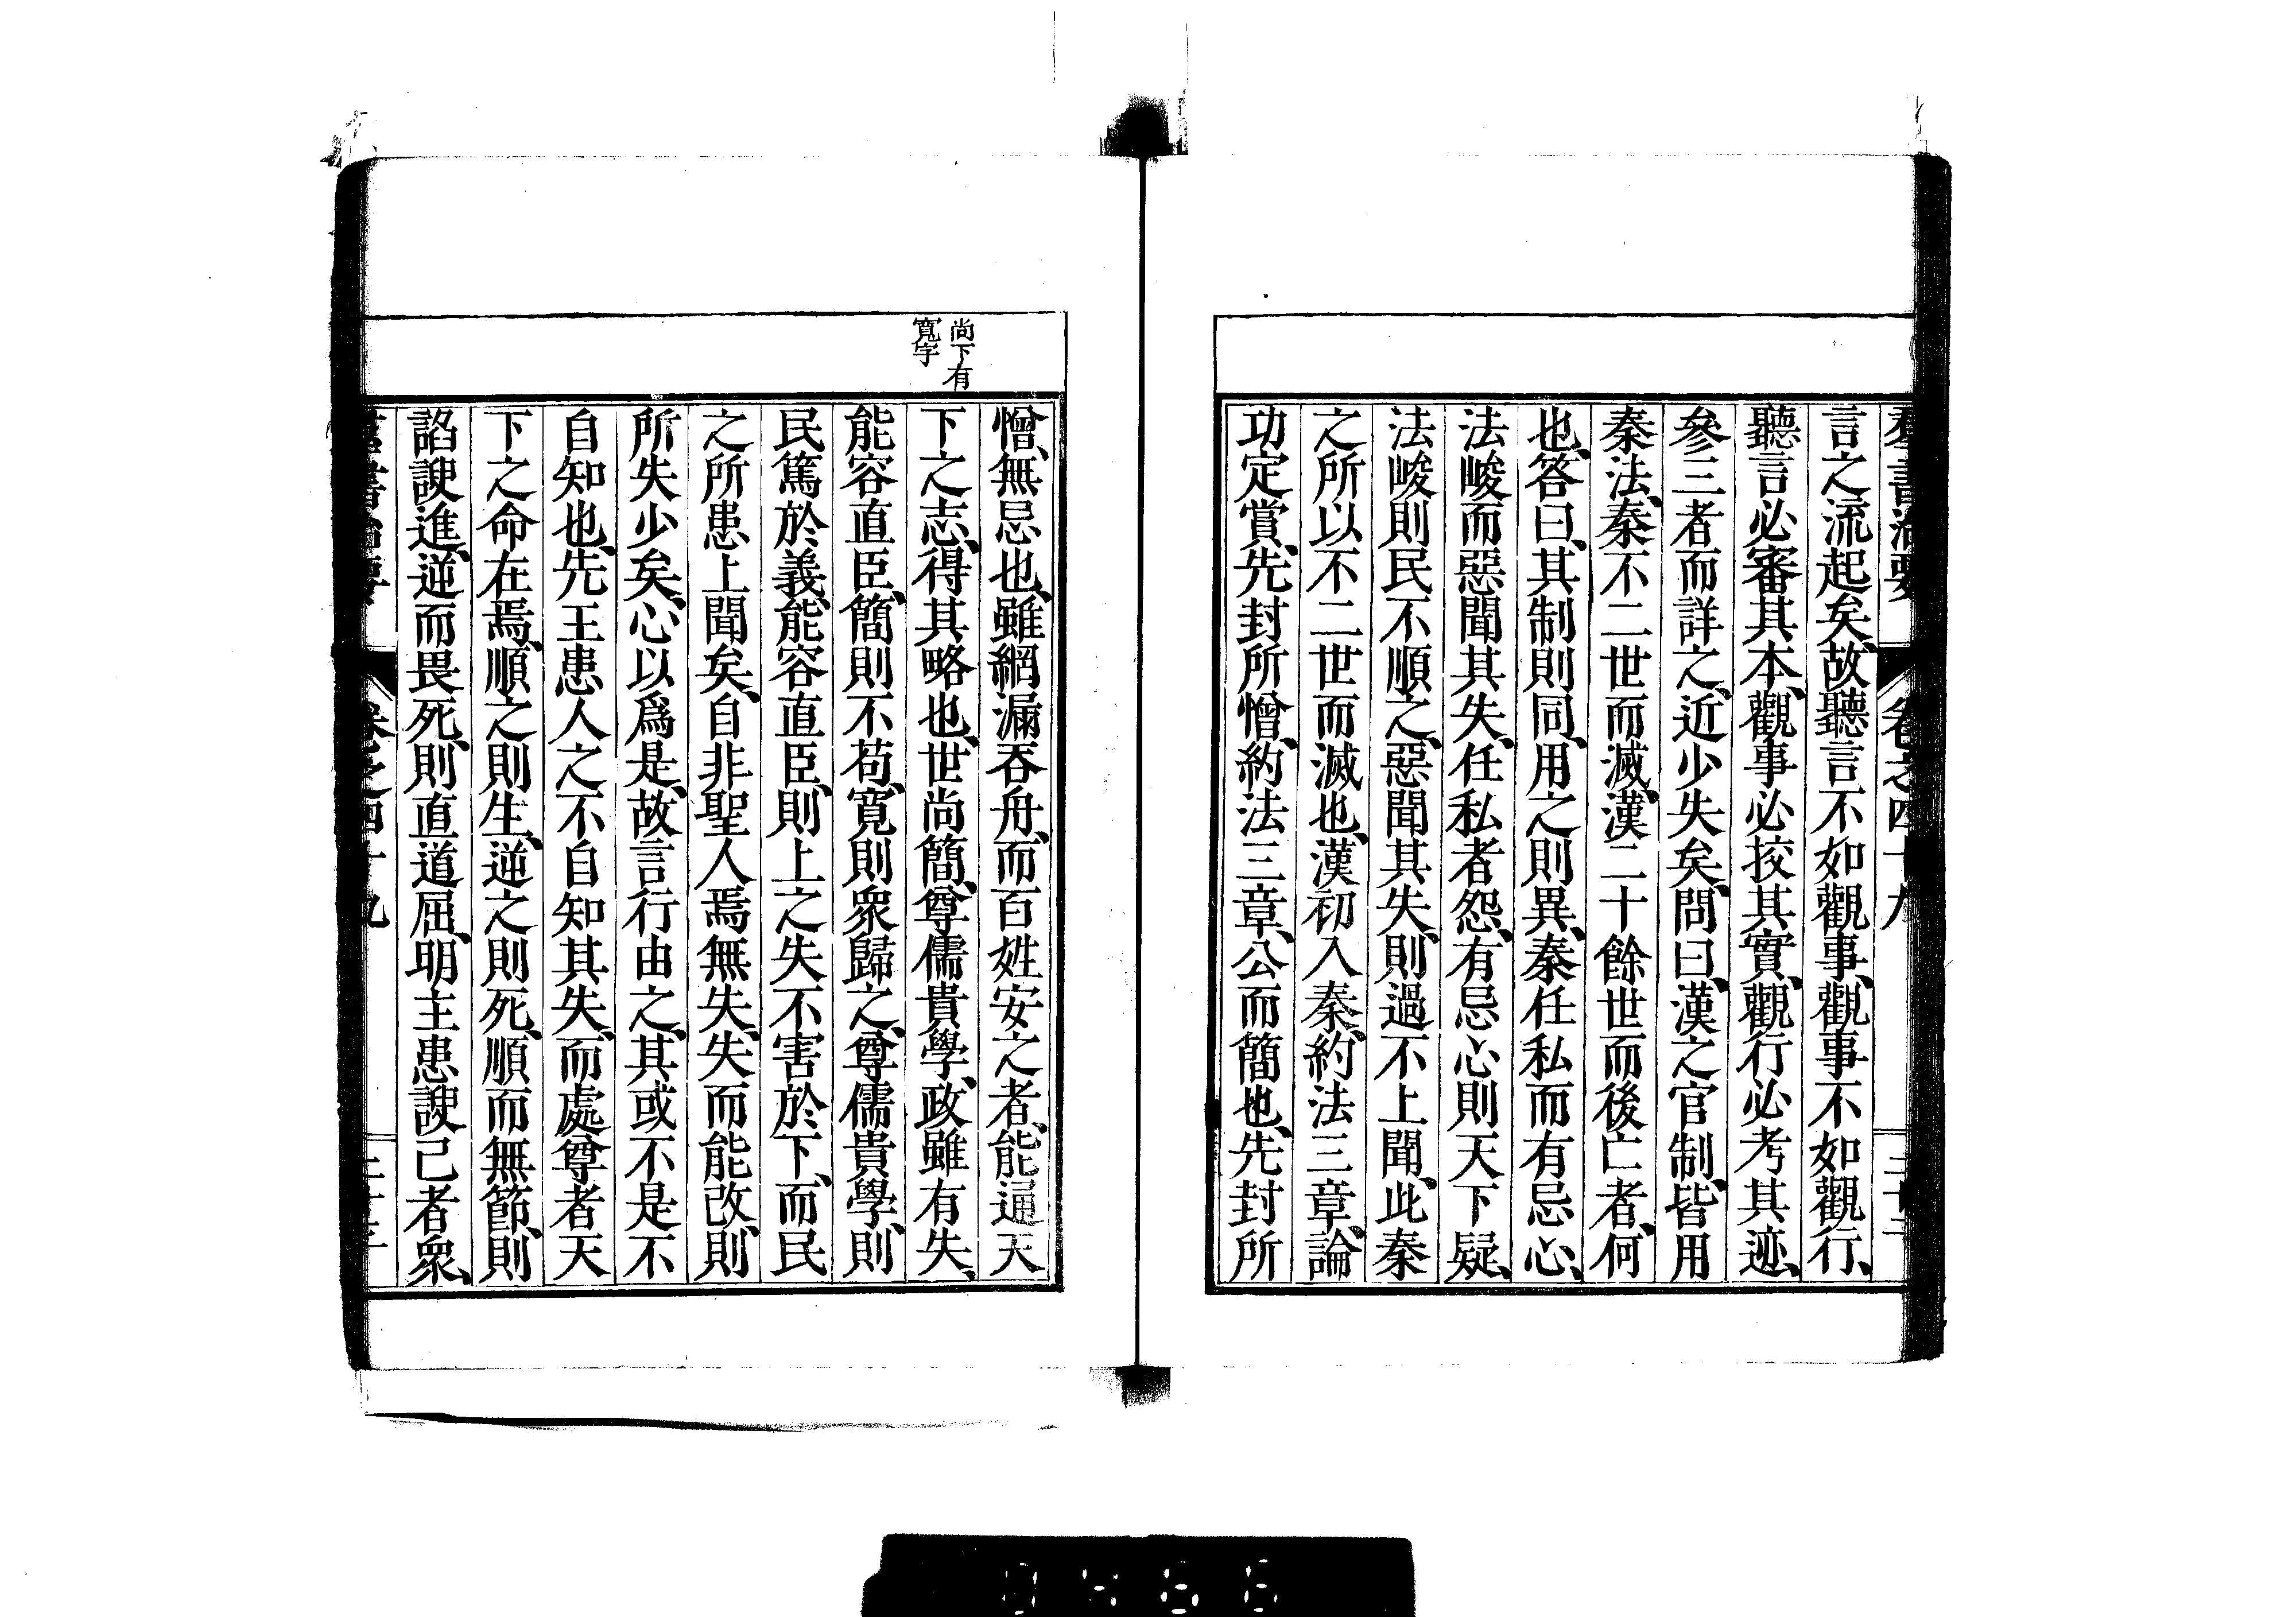 羣書治要 卷之四十九
言之流起矣、故聽言不如觀事、觀事不如觀行、
聽言必審其本、觀事必挍其實、觀行必考其迹、
參三者而詳之、近少失矣、問曰、漢之官制、皆用
秦法、秦不二世而滅、漢二十餘世而後亡者、何
也、答曰、其制則同、用之則異、秦任私而有忌心、
法峻而惡聞其失、任私者怨、有忌心則天下疑、
法峻則民不順之、惡聞其失、則過不上聞、此秦
之所以不二世而滅也、漢初入秦、約法三章、論
功定賞、先封所憎、約法三章、公而簡也、先封所
尚下有
寬字
憎、無忌也、雖網漏吞舟、而百姓安之者、能通天
下之志、得其略也、世尚簡、尊儒貴學、政雖有失、
能容直臣、簡則不苟、寬則衆歸之、尊儒貴學、則
民篤於義、能容直臣、則上之失不害於下、而民
之所患上聞矣、自非聖人焉無失、失而能改、則
所失少矣、心以爲是、故言行由之、其或不是不
自知也、先王患人之不自知其失、而處尊者天
下之命在焉、順之則生、逆之則死、順而無節、則
諂諛進、逆而畏死、則直道屈、明主患諛己者衆、
羣書治要 卷之四十九